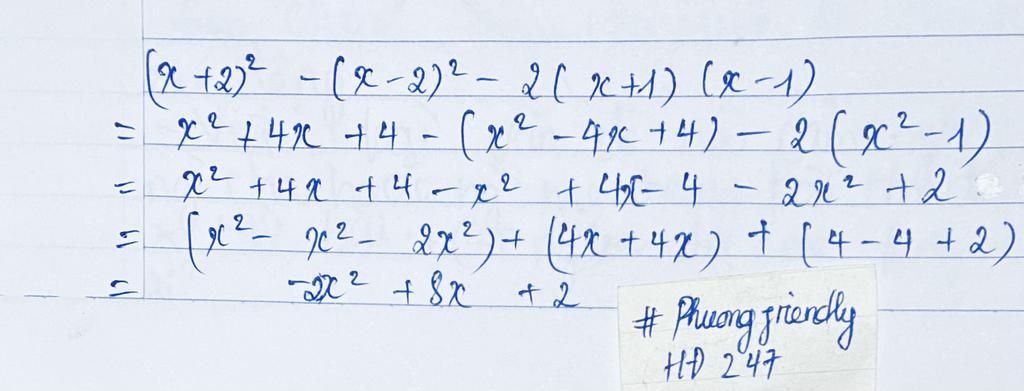 (x+2)² - (x-2)² - 2(x+1)(x-1)
= x² + 4x + 4 - (x² - 4x + 4) - 2(x² - 1)
= x² + 4x + 4 - x² + 4x - 4 - 2x² + 2
= (x² - x² - 2x²) + (4x + 4x) + (4 - 4 + 2)
= -2x² + 8x + 2
# Phuongfriendly
HĐ 247